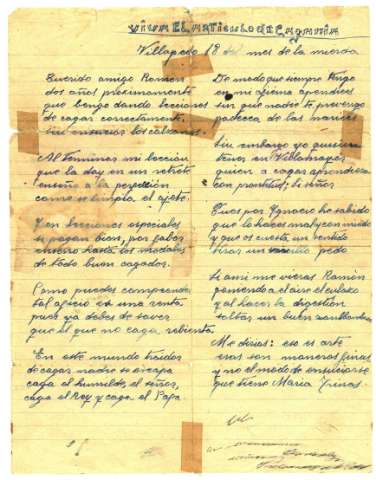 VIVA EL ARTICULO DE CAGANIA
Villapedo 18 del mes de la mierda
Querido amigo Ramon
dos años proximamente
que bengo dando lecciones
de cagar correctamente
sin ensucios los calzones
Al terminar mi leccion
que la doy en un retrete
enseño a la perfección
como se limpia el ojete
Y en lecciones especiales
si pagan bien, por favor
enseño hasta los modales
de todo buen cagador.
Como puedes comprender
tal oficio es una renta
pues ya debes de saver
que el que no caga rebienta.
En este mundo traidor
de cagar nadie se escapa
caga el humilde, el señor,
caga el Rey y caga el Papa.
De modo que siempre tengo
en mi oficina aprendices
sin que nadie te prevengo
padezca de las narices
Sin embargo yo quisiera
teneros en Villamayor
quien a cagar aprendiera
con prontitud, si señor
Pues por Ignacio he sabido
que lo haces mal y con miedo
y que os cuesta un sentido
tirar un sencillo pedo
Si a mi me vieras Ramón
poniendo al aire el culazo
y al hacer la digestión
soltar un buen
Me dirias: eso es arte
esas son maneras finas
y no el modo de ensuciarse
que tiene Maria